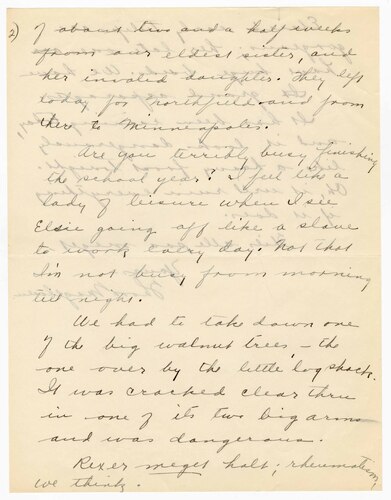 2)
of about two and a half weeks
from our eldest sister, and
her invalid daughter. They left
today for Northfield and from
there to Minneapolis.
Are you terribly busy, finishing
the school year? I feel like a
lady of leisure when I see
Elsie going off like a slave
to work every day. Not that
I'm not busy, from morning
till night.
We had to take down one
of the big walnut trees, - the
one over by the little log shack.
It was cracked clear thru
in one of its two big arms
and was dangerous.
Rexer meget halt; rheumatism,
we think.